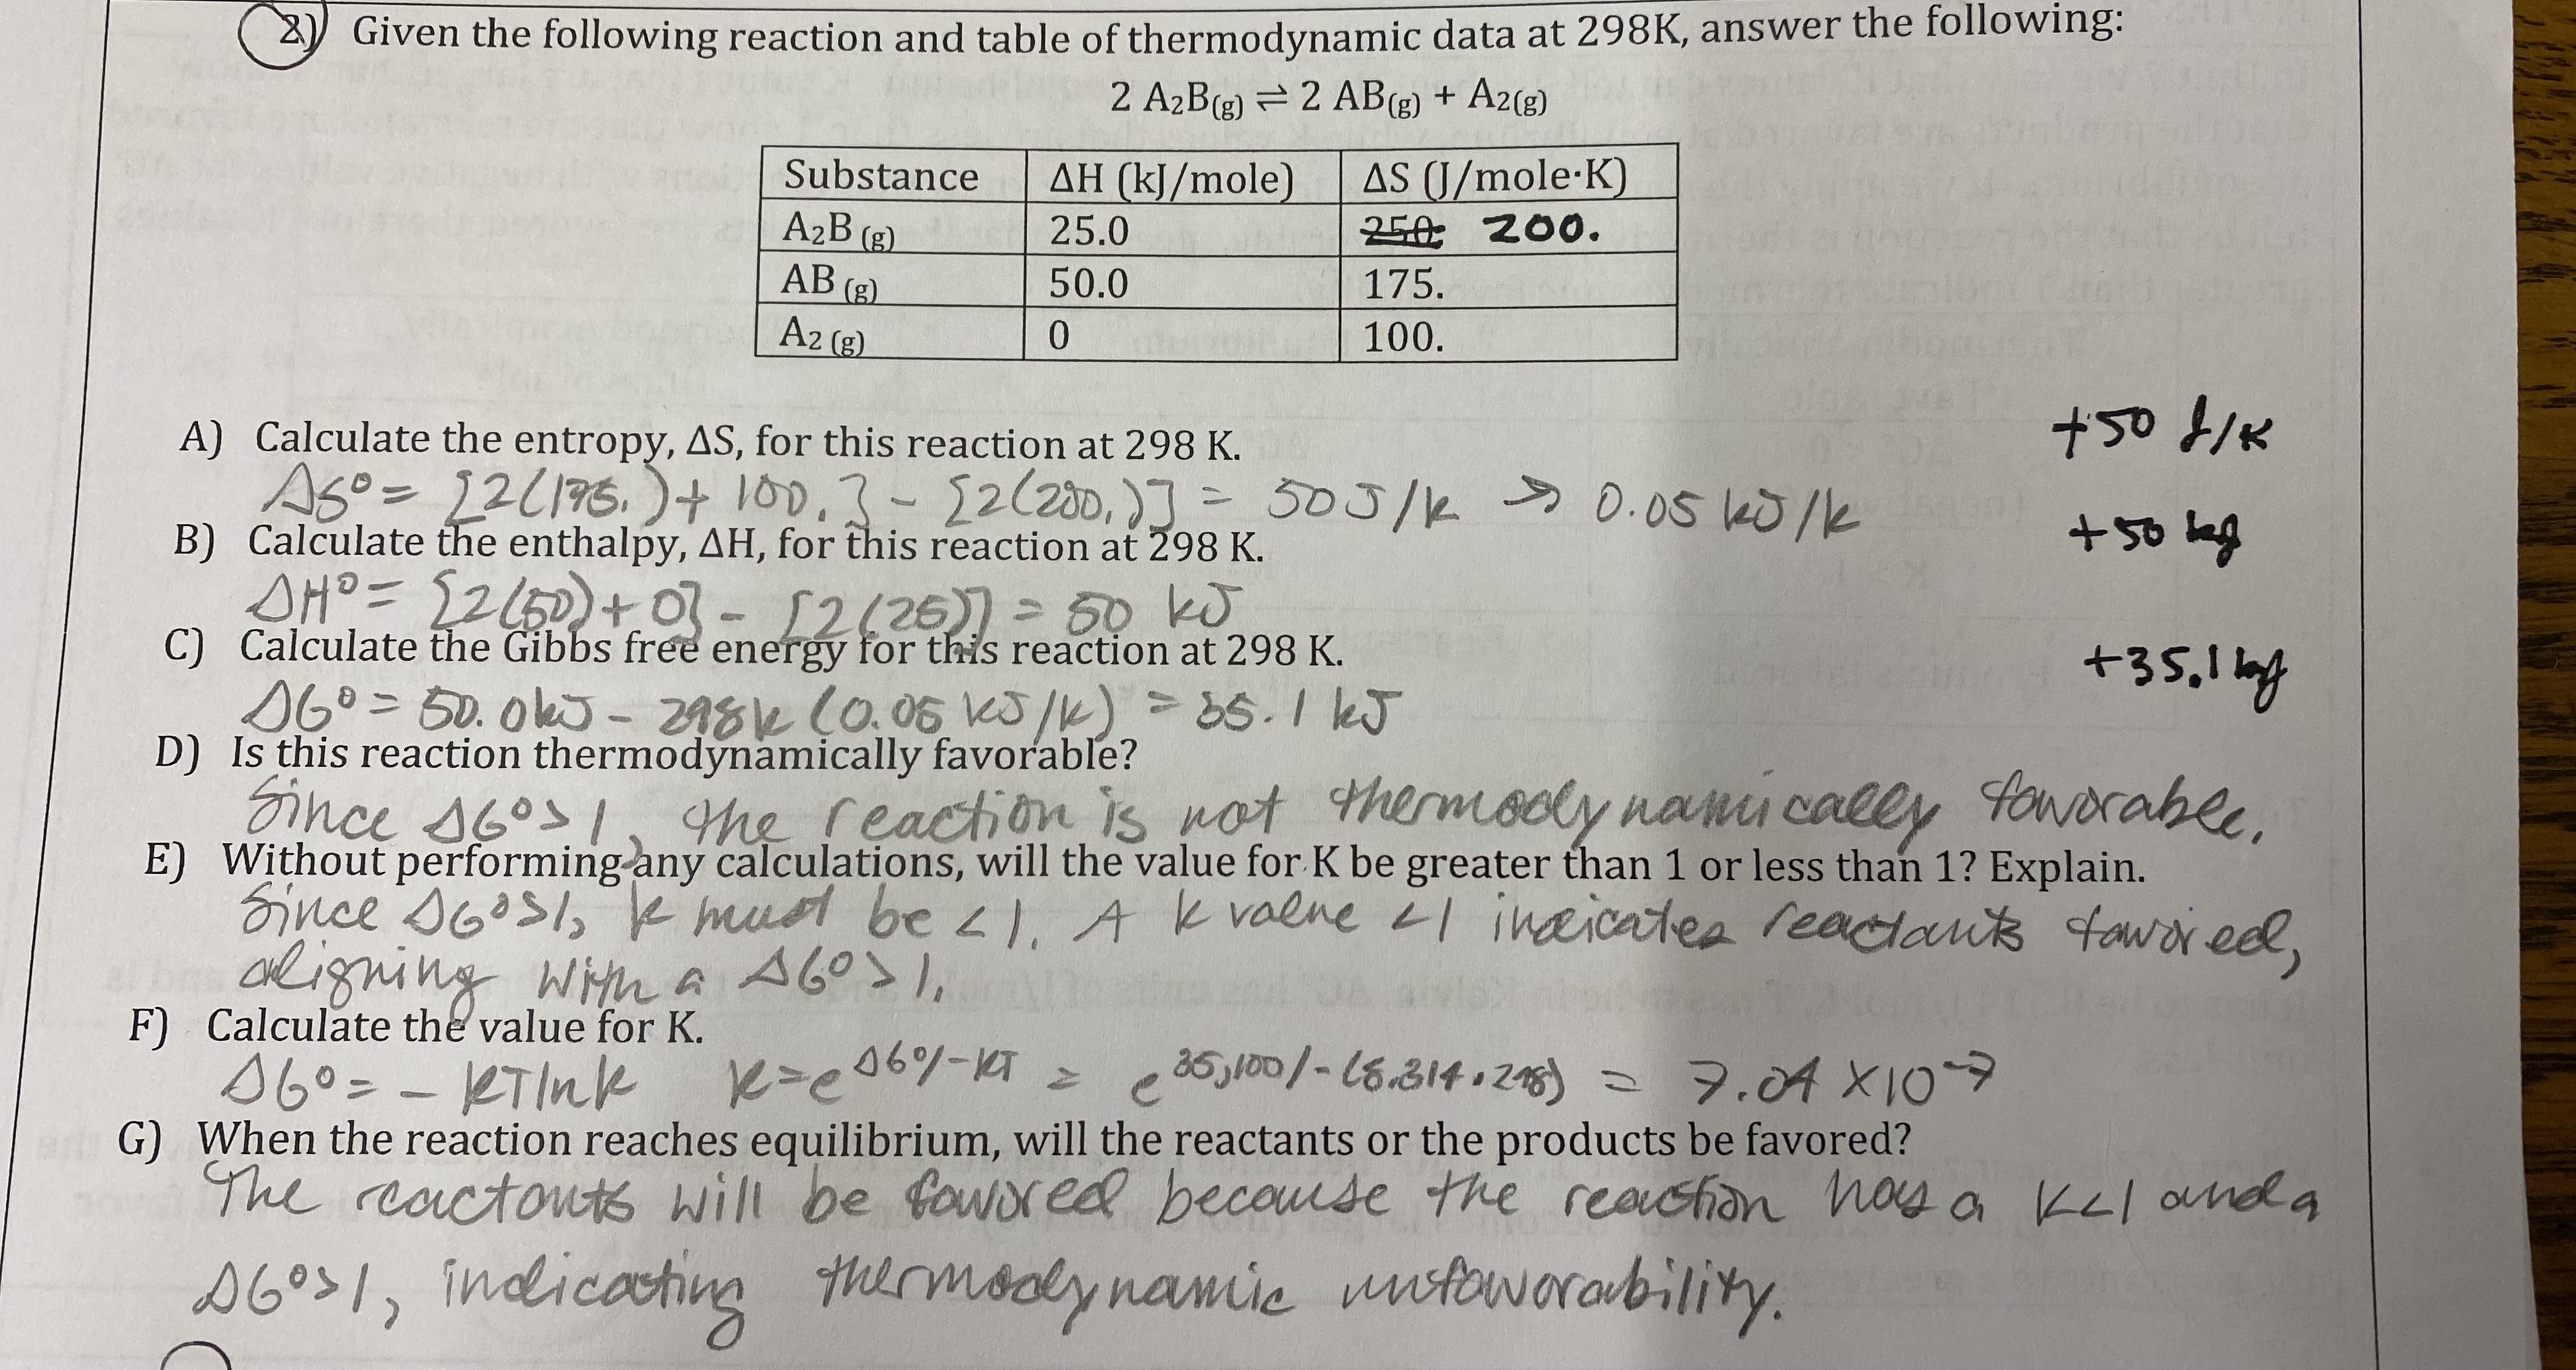 2) Given the following reaction and table of thermodynamic data at 298K, answer the following:
2 A₂B(g) ⇌ 2 AB(g) + A₂(g)
Substance ΔH (kJ/mole) ΔS (J/mole·K)
A₂B (g) 25.0 250. 200.
AB (g) 50.0 175.
A₂ (g) 0 100.
A) Calculate the entropy, ΔS, for this reaction at 298 K. +50 J/K
ΔS° = [2(175.) + 100.] - [2(200.)] = 50 J/K → 0.05 kJ/K
B) Calculate the enthalpy, ΔH, for this reaction at 298 K. +50 kJ
ΔH° = [2(50) + 0] - [2(25)] = 50 kJ
C) Calculate the Gibbs free energy for this reaction at 298 K. +35.1 kJ
ΔG° = 50.0 kJ - 298K (0.05 kJ/K) = 35.1 kJ
D) Is this reaction thermodynamically favorable?
Since ΔG° > 1, the reaction is not thermodynamically favorable.
E) Without performing any calculations, will the value for K be greater than 1 or less than 1? Explain.
Since ΔG° > 1, K must be < 1. A K value < 1 indicates reactants favored,
aligning with a ΔG° > 1.
F) Calculate the value for K.
ΔG° = - RT ln K K = e^ΔG°/-RT = e^35,100/-(8.314·298) = 7.04 × 10⁻⁷
G) When the reaction reaches equilibrium, will the reactants or the products be favored?
The reactants will be favored because the reaction has a K<1 and a
ΔG° > 1, indicating thermodynamic unfavorability.